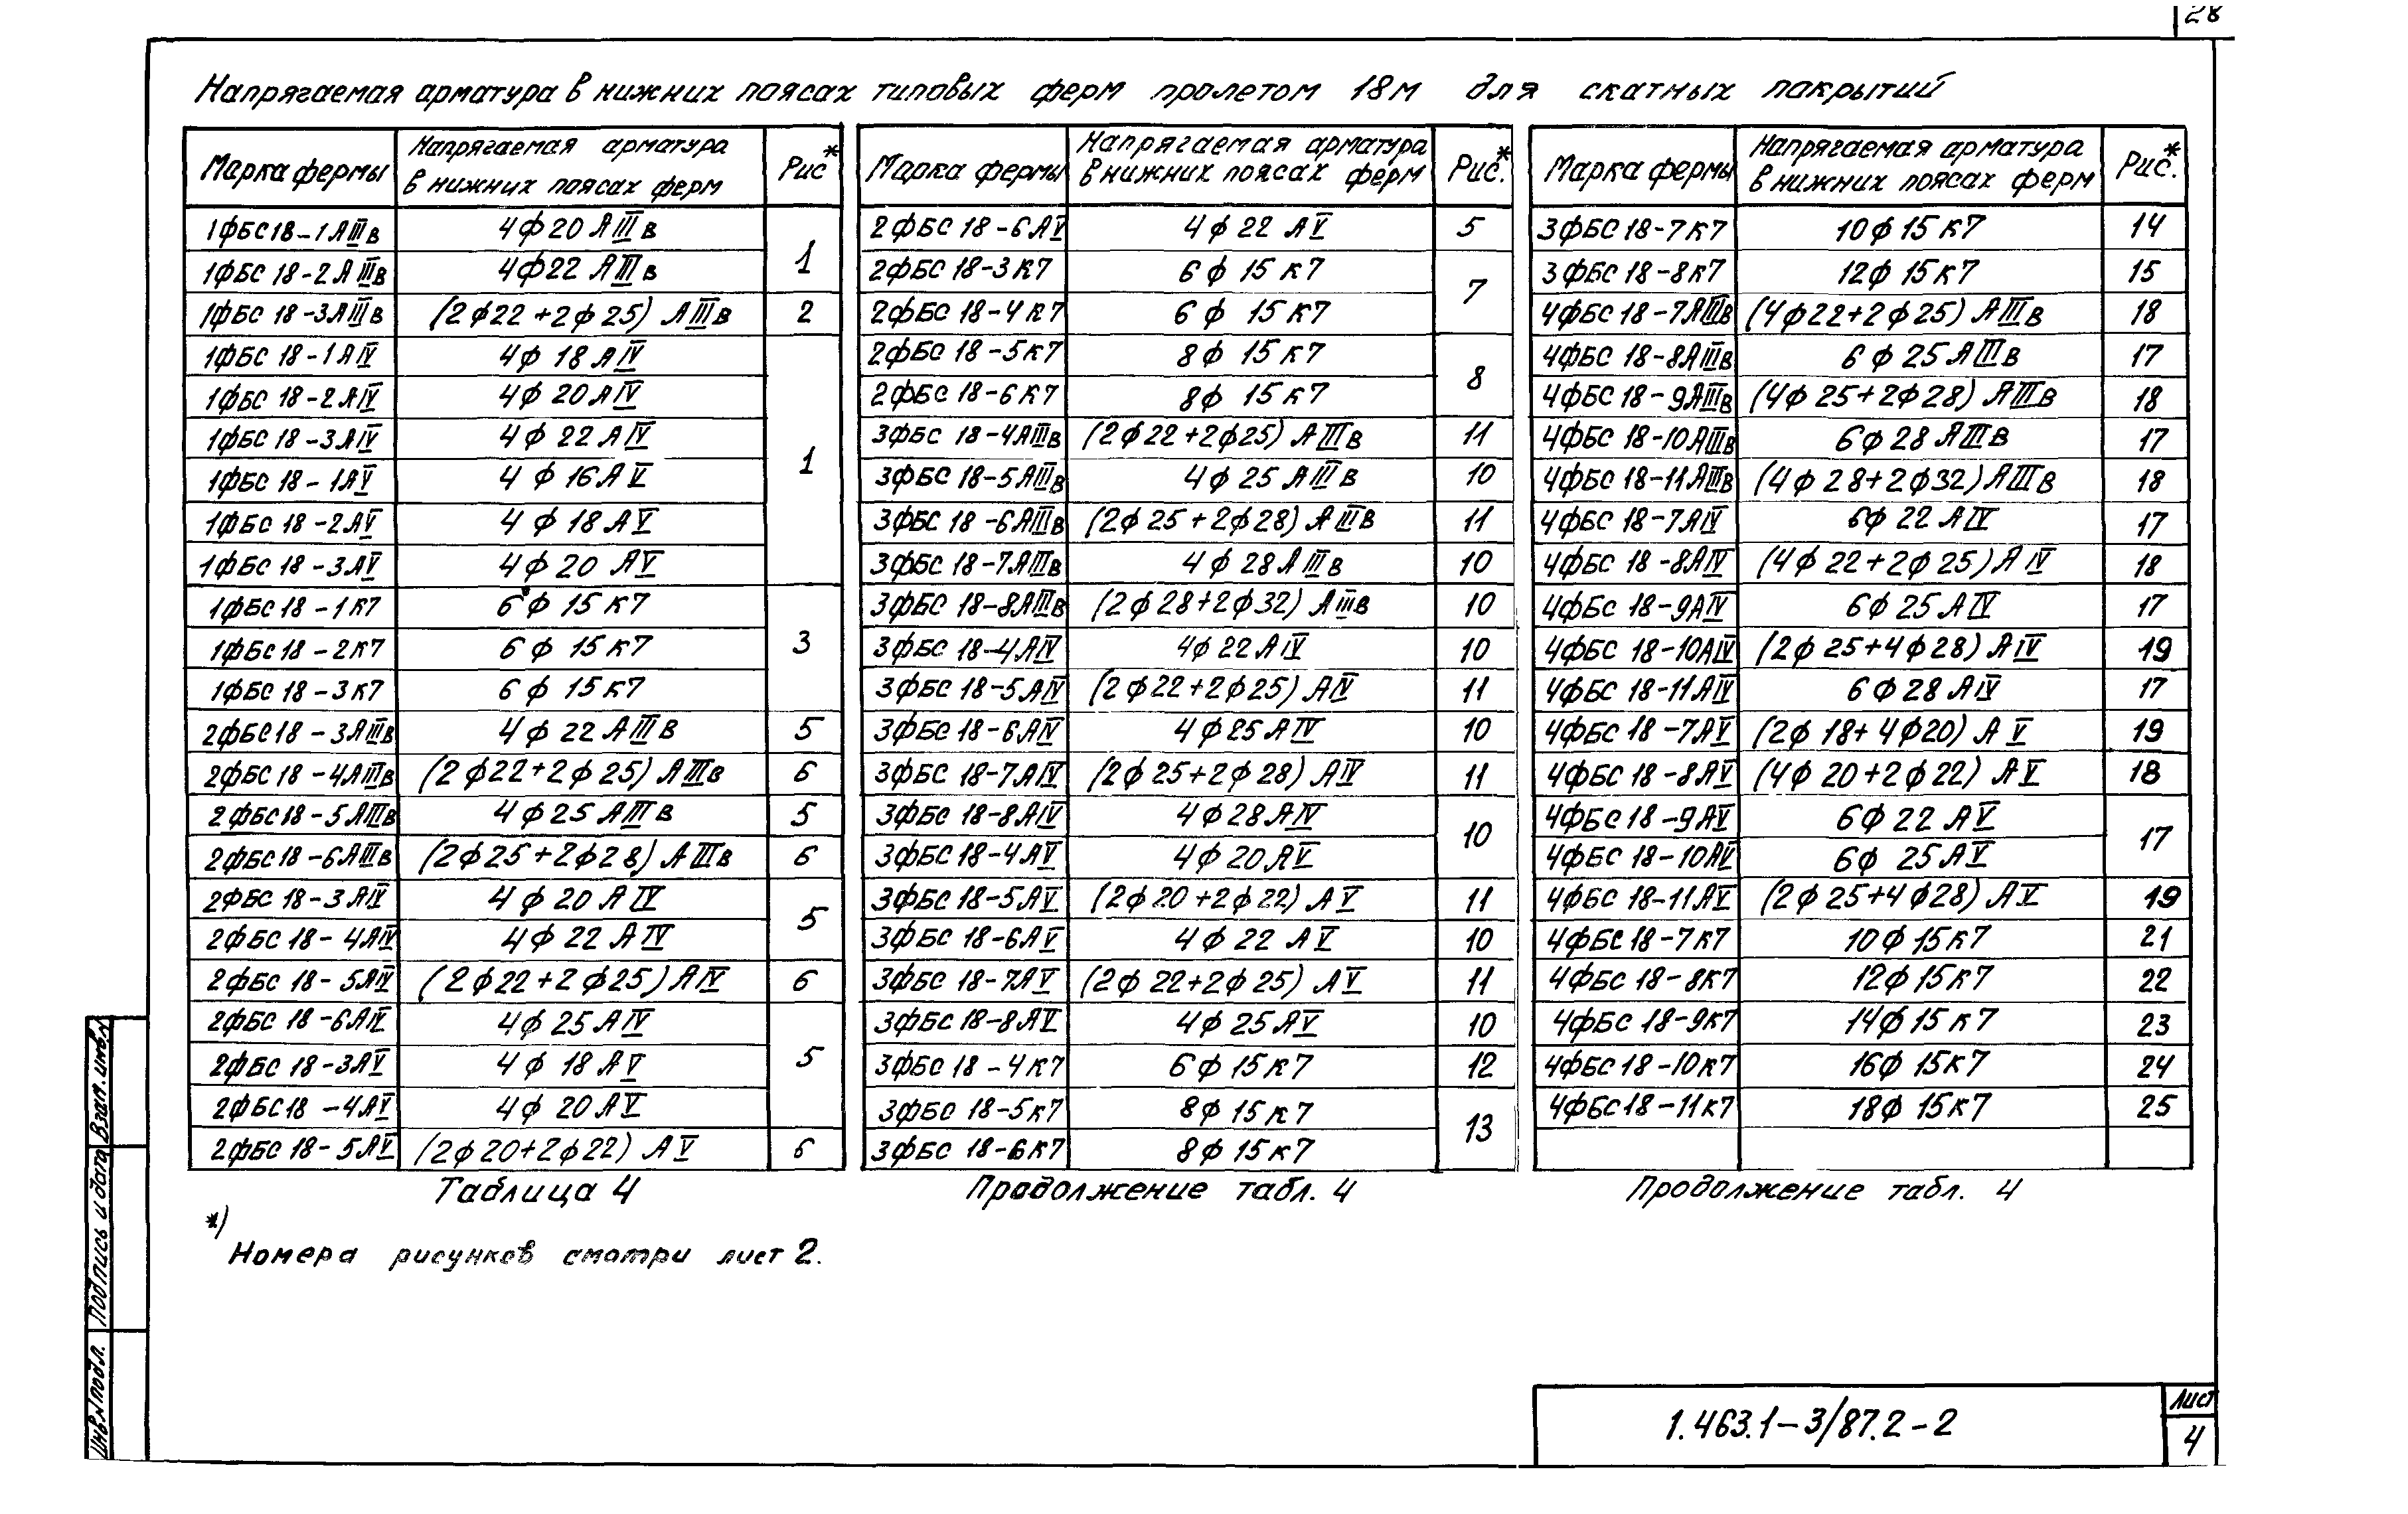 28
Напрягаемая арматура в нижних поясах типовых ферм пролетом 18м для скатных покрытий
Марка фермы | Напрягаемая арматура в нижних поясах ферм | Рис*
1ФБС18-1АIIIв | 4ф20 АIIIв | 1
1ФБС 18-2АIIIв | 4ф22 АIIIв
1ФБС 18-3АIIIв | (2ф22+2ф25) АIIIв | 2
1ФБС 18-1АIV | 4ф 18 АIV | 1
1ФБС 18-2АIV | 4ф 20 АIV
1ФБС 18-3АIV | 4ф 22 АIV
1ФБС 18-1АV | 4 ф 16 АV
1ФБС 18-2АV | 4 ф 18 АV
1ФБС 18-3АV | 4ф 20 АV
1ФБС 18-1К7 | 6 ф 15 К7 | 3
1ФБС 18-2К7 | 6 ф 15 К7
1ФБС 18-3К7 | 6 ф 15 К7
2ФБС18-3АIIIв | 4 ф 22 АIIIв | 5
2ФБС18-4АIIIв | (2ф22+2ф25) АIIIв | 6
2ФБС18-5АIIIв | 4ф25 АIIIв | 5
2ФБС18-6АIIIв | (2ф25+2ф28) АIIIв | 6
2ФБС 18-3АIV | 4ф 20 АIV | 5
2ФБС 18-4АIV | 4ф 22 АIV
2ФБС 18-5АIV | (2ф22+2ф25) АIV | 6
2ФБС 18-6АIV | 4ф 25 АIV | 5
2ФБС 18-3АV | 4 ф 18 АV
2ФБС18-4АV | 4ф 20 АV
2ФБС 18-5АV | (2ф20+2ф22) АV | 6
Таблица 4
Марка фермы | Напрягаемая арматура в нижних поясах ферм | Рис.*
2ФБС 18-6АV | 4ф 22 АV | 5
2ФБС 18-3К7 | 6ф 15 К7 | 7
2ФБС 18-4К7 | 6 ф 15 К7
2ФБС 18-5К7 | 8ф 15 К7 | 8
2ФБС 18-6К7 | 8ф 15 К7
3ФБС 18-4АIIIв | (2ф22+2ф25) АIIIв | 11
3ФБС 18-5АIIIв | 4ф 25 АIIIв | 10
3ФБС 18-6АIIIв | (2ф25+2ф28) АIIIв | 11
3ФБС 18-7АIIIв | 4ф 28 АIIIв | 10
3ФБС 18-8АIIIв | (2ф28+2ф32) АIIIв | 10
3ФБС 18-4АIV | 4ф 22 АIV | 10
3ФБС 18-5АIV | (2ф22+2ф25) АIV | 11
3ФБС 18-6АIV | 4ф25 АIV | 10
3ФБС 18-7АIV | (2ф25+2ф28) АIV | 11
3ФБС 18-8АIV | 4ф28АIV | 10
3ФБС18-4АV | 4ф20АV
3ФБС 18-5АV | (2ф20+2ф22) АV | 11
3ФБС 18-6АV | 4ф 22 АV | 10
3ФБС 18-7АV | (2ф 22+2ф25) АV | 11
3ФБС18-8АV | 4ф25АV | 10
3ФБС 18-4К7 | 6ф 15К7 | 12
3ФБС 18-5К7 | 8ф 15К7 | 13
3ФБС 18-6К7 | 8ф 15К7
Продолжение табл. 4
Марка фермы | Напрягаемая арматура в нижних поясах ферм | Рис.*
3ФБС 18-7К7 | 10ф 15 К7 | 14
3ФБС 18-8К7 | 12ф 15К7 | 15
4ФБС 18-7АIIIв | (4ф22+2ф25) АIIIв | 18
4ФБС 18-8АIIIв | 6 ф 25 АIIIв | 17
4ФБС 18-9АIIIв | (4ф25+2ф28) АIIIв | 18
4ФБС 18-10АIIIв | 6ф 28 АIIIв | 17
4ФБС 18-11АIIIв | (4ф 28+2ф32) АIIIв | 18
4ФБС 18-7АIV | 6ф 22 АIV | 17
4ФБС 18-8АIV | (4ф 22+2ф 25) АIV | 18
4ФБС 18-9АIV | 6ф 25 АIV | 17
4ФБС 18-10АIV | (2ф 25+4ф28) АIV | 19
4ФБС 18-11АIV | 6ф28 АIV | 17
4ФБС 18-7АV | (2ф 18+4ф20) АV | 19
4ФБС 18-8АV | (4ф 20+2ф22) АV | 18
4ФБС 18-9АV | 6ф 22 АV | 17
4ФБС 18-10АV | 6ф 25АV
4ФБС 18-11АV | (2ф25+4ф28) АV | 19
4ФБС 18-7К7 | 10ф 15К7 | 21
4ФБС 18-8К7 | 12ф 15К7 | 22
4ФБС 18-9К7 | 14ф 15 К7 | 23
4ФБС 18-10К7 | 16ф 15К7 | 24
4ФБС18-11К7 | 18ф 15К7 | 25
Продолжение табл. 4
*) Номера рисунков смотри лист 2.
Инв.№подл. Подпись и дата Взам.инв.№
1.463.1-3/87.2-2
Лист
4